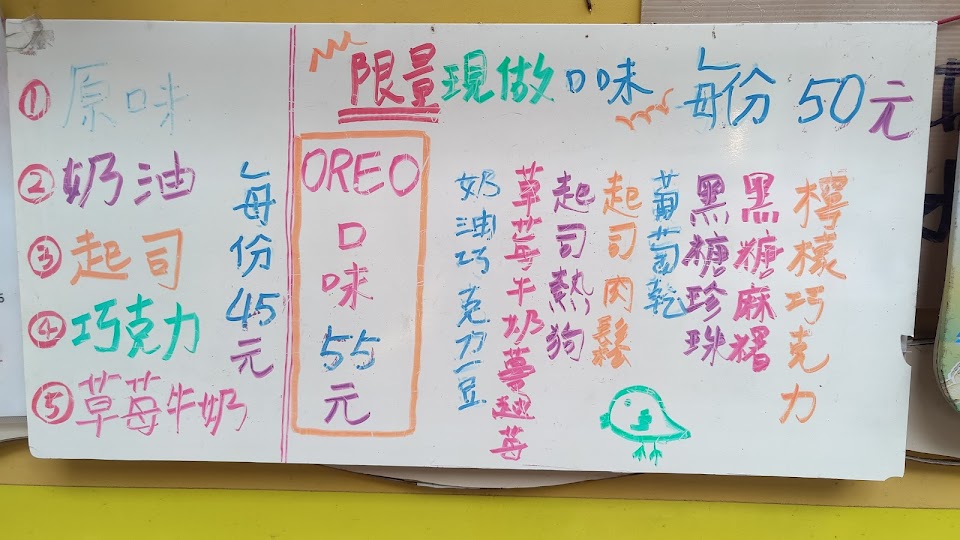 ① 原味
② 奶油
③ 起司
④ 巧克力
⑤ 草莓牛奶
每份45元
限量現做口味 每份 50元
OREO
口味
55
元
檸檬巧克力
黑糖麻糬
黑糖珍珠
葡萄乾
起司肉鬆
起司熱狗
草莓牛奶蔓越莓
奶油巧克力豆